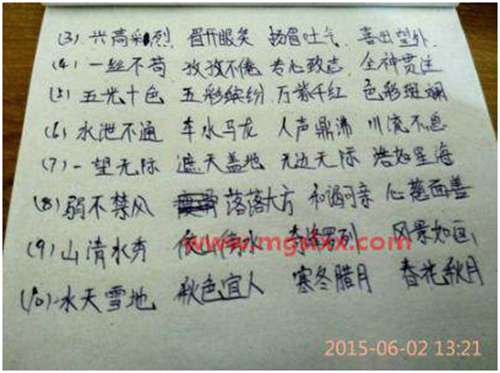 (3) 兴高彩烈 眉开眼笑 扬眉吐气 喜出望外
(4) 一丝不苟 孜孜不倦 专心致志 全神贯注
(5) 五光十色 五彩缤纷 万紫千红 色彩斑斓
(6) 水泄不通 车水马龙 人声鼎沸 川流不息
(7) 一望无际 遮天盖地 无边无际 浩如星海
(8) 弱不禁风 落落大方 和谒可亲 心慈面善
(9) 山清水秀 依山傍水 风景如画
www.mgxxx.com
(10) 水天雪地 秋色宜人 寒冬腊月 春花秋月
2015-06-02 13:21